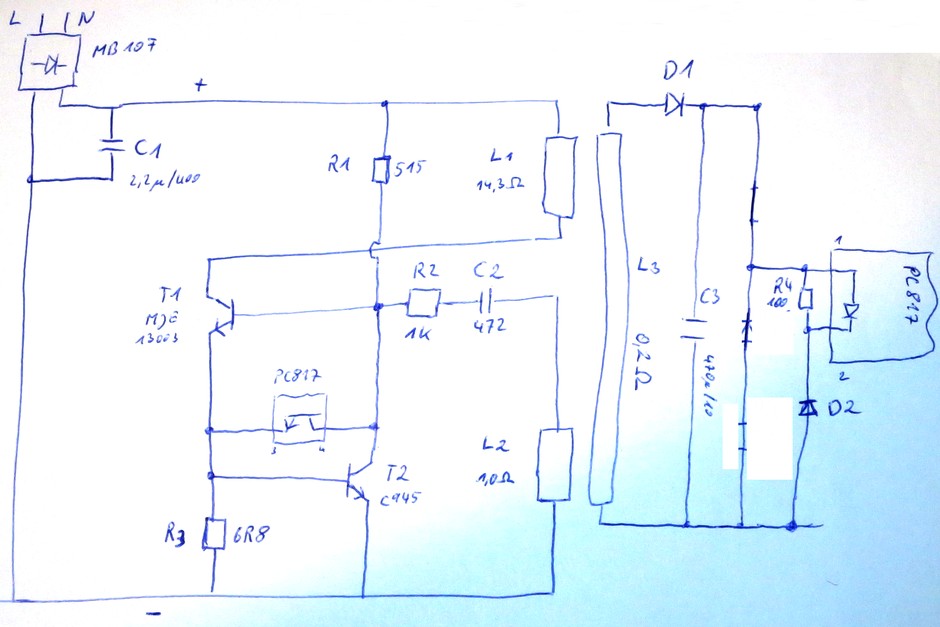 L N
MB107
+
C1
2,2µ/400
R1
515
L1
14,3Ω
D1
T1
MJE
13003
R2
1K
C2
472
L3
0,2Ω
C3
470µ/10
R4
100
1
PC817
2
D2
PC817
3 4
T2
C945
L2
1,0Ω
R3
6R8
-